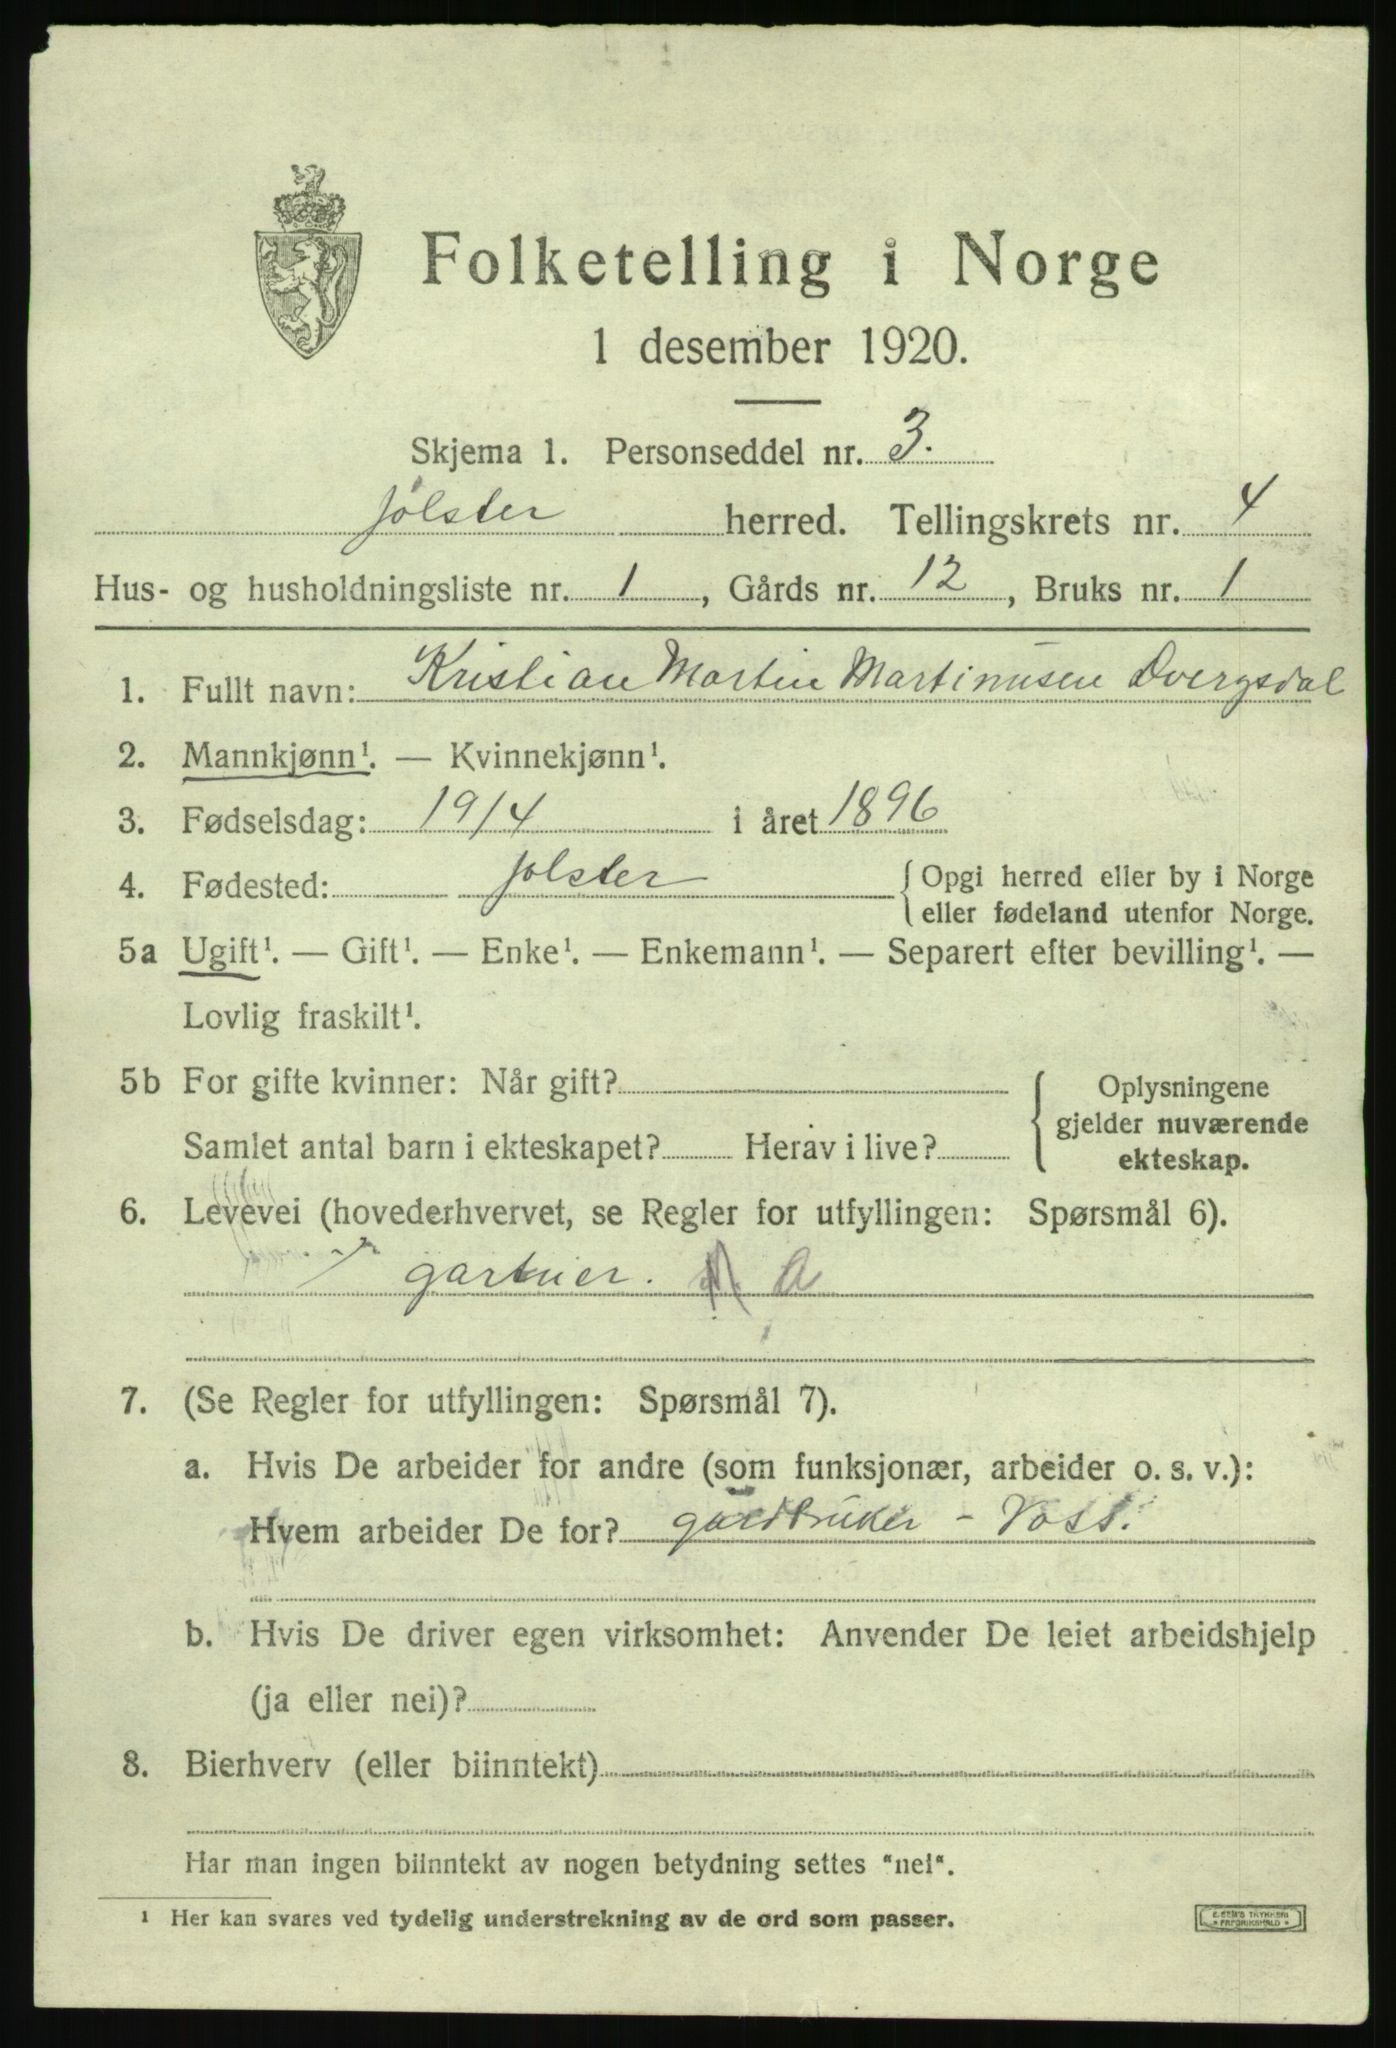 Folketelling i Norge
1 desember 1920.
Skjema 1. Personseddel nr. 3.
Jølster herred. Tellingskrets nr. 4
Hus- og husholdningsliste nr. 1, Gårds nr. 12, Bruks nr. 1
1. Fullt navn: Kristian Martin Martinusen Dvergsdal
2. Mannkjønn¹. — Kvinnekjønn¹.
3. Fødselsdag: 19/4 i året 1896
4. Fødested: Jølster { Opgi herred eller by i Norge
eller fødeland utenfor Norge.
5a Ugift¹. — Gift¹. — Enke¹. — Enkemann¹. — Separert efter bevilling¹. —
Lovlig fraskilt¹.
5b For gifte kvinner: Når gift? { Oplysningene
gjelder nuværende
Samlet antal barn i ekteskapet? Herav i live?
ekteskap.
6. Levevei (hovederhvervet, se Regler for utfyllingen: Spørsmål 6).
gartner. A
7. (Se Regler for utfyllingen: Spørsmål 7).
a. Hvis De arbeider for andre (som funksjonær, arbeider o. s. v.):
Hvem arbeider De for? gårdbruker - Voss.
b. Hvis De driver egen virksomhet: Anvender De leiet arbeidshjelp
(ja eller nei)?
8. Bierhverv (eller biinntekt)
Har man ingen biinntekt av nogen betydning settes "nei".
¹ Her kan svares ved tydelig understrekning av de ord som passer.
E. SEM'S TRYKKERI
* FREDRIKSHALD *